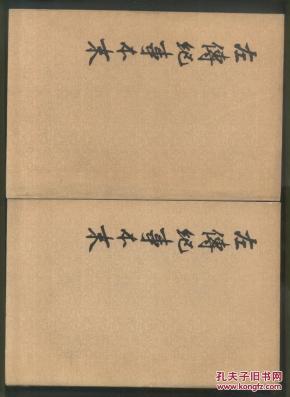 左傳紀事本末
左傳紀事本末
孔夫子旧书网